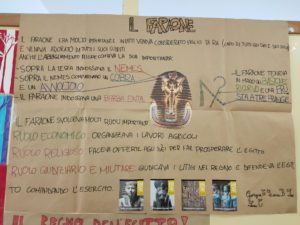 IL FARAONE
IL FARAONE ERA MOLTO IMPORTANTE INFATTI VENIVA CONSIDERATO FIGLIO DI RA
E VENIVA ADORATO IN TUTTI I SUOI
ANCHE L'ABBIGLIAMENTO RISPECCHIAVA LA SUA IMPORTANZA:
SOPRA LA TESTA INDOSSAVA IL NEMES
SOPRA IL NEMES COMPARIVANO UN COBRA
E UN AVVOLTOIO
IL FARAONE INDOSSAVA UNA BARBA FINTA
IL FARAONE TENEVA
IN MANO UN BASTONE
RICURVO E UNO
CON ALTRE FRANGE
IL FARAONE SVOLGEVA MOLTI RUOLI IMPORTANTI
RUOLO ECONOMICO: ORGANIZZAVA I LAVORI AGRICOLI
RUOLO RELIGIOSO: FACEVA OFFERTE AGLI DEI PER FAR PROSPERARE L'EGITTO
RUOLO GIUDIZIARIO E MILITARE: GIUDICAVA I LITIGI NEL REGNO E DIFENDEVA L'EGIT
TO COMANDANDO L'ESERCITO.
IL REGNO DELL'EGITTO!